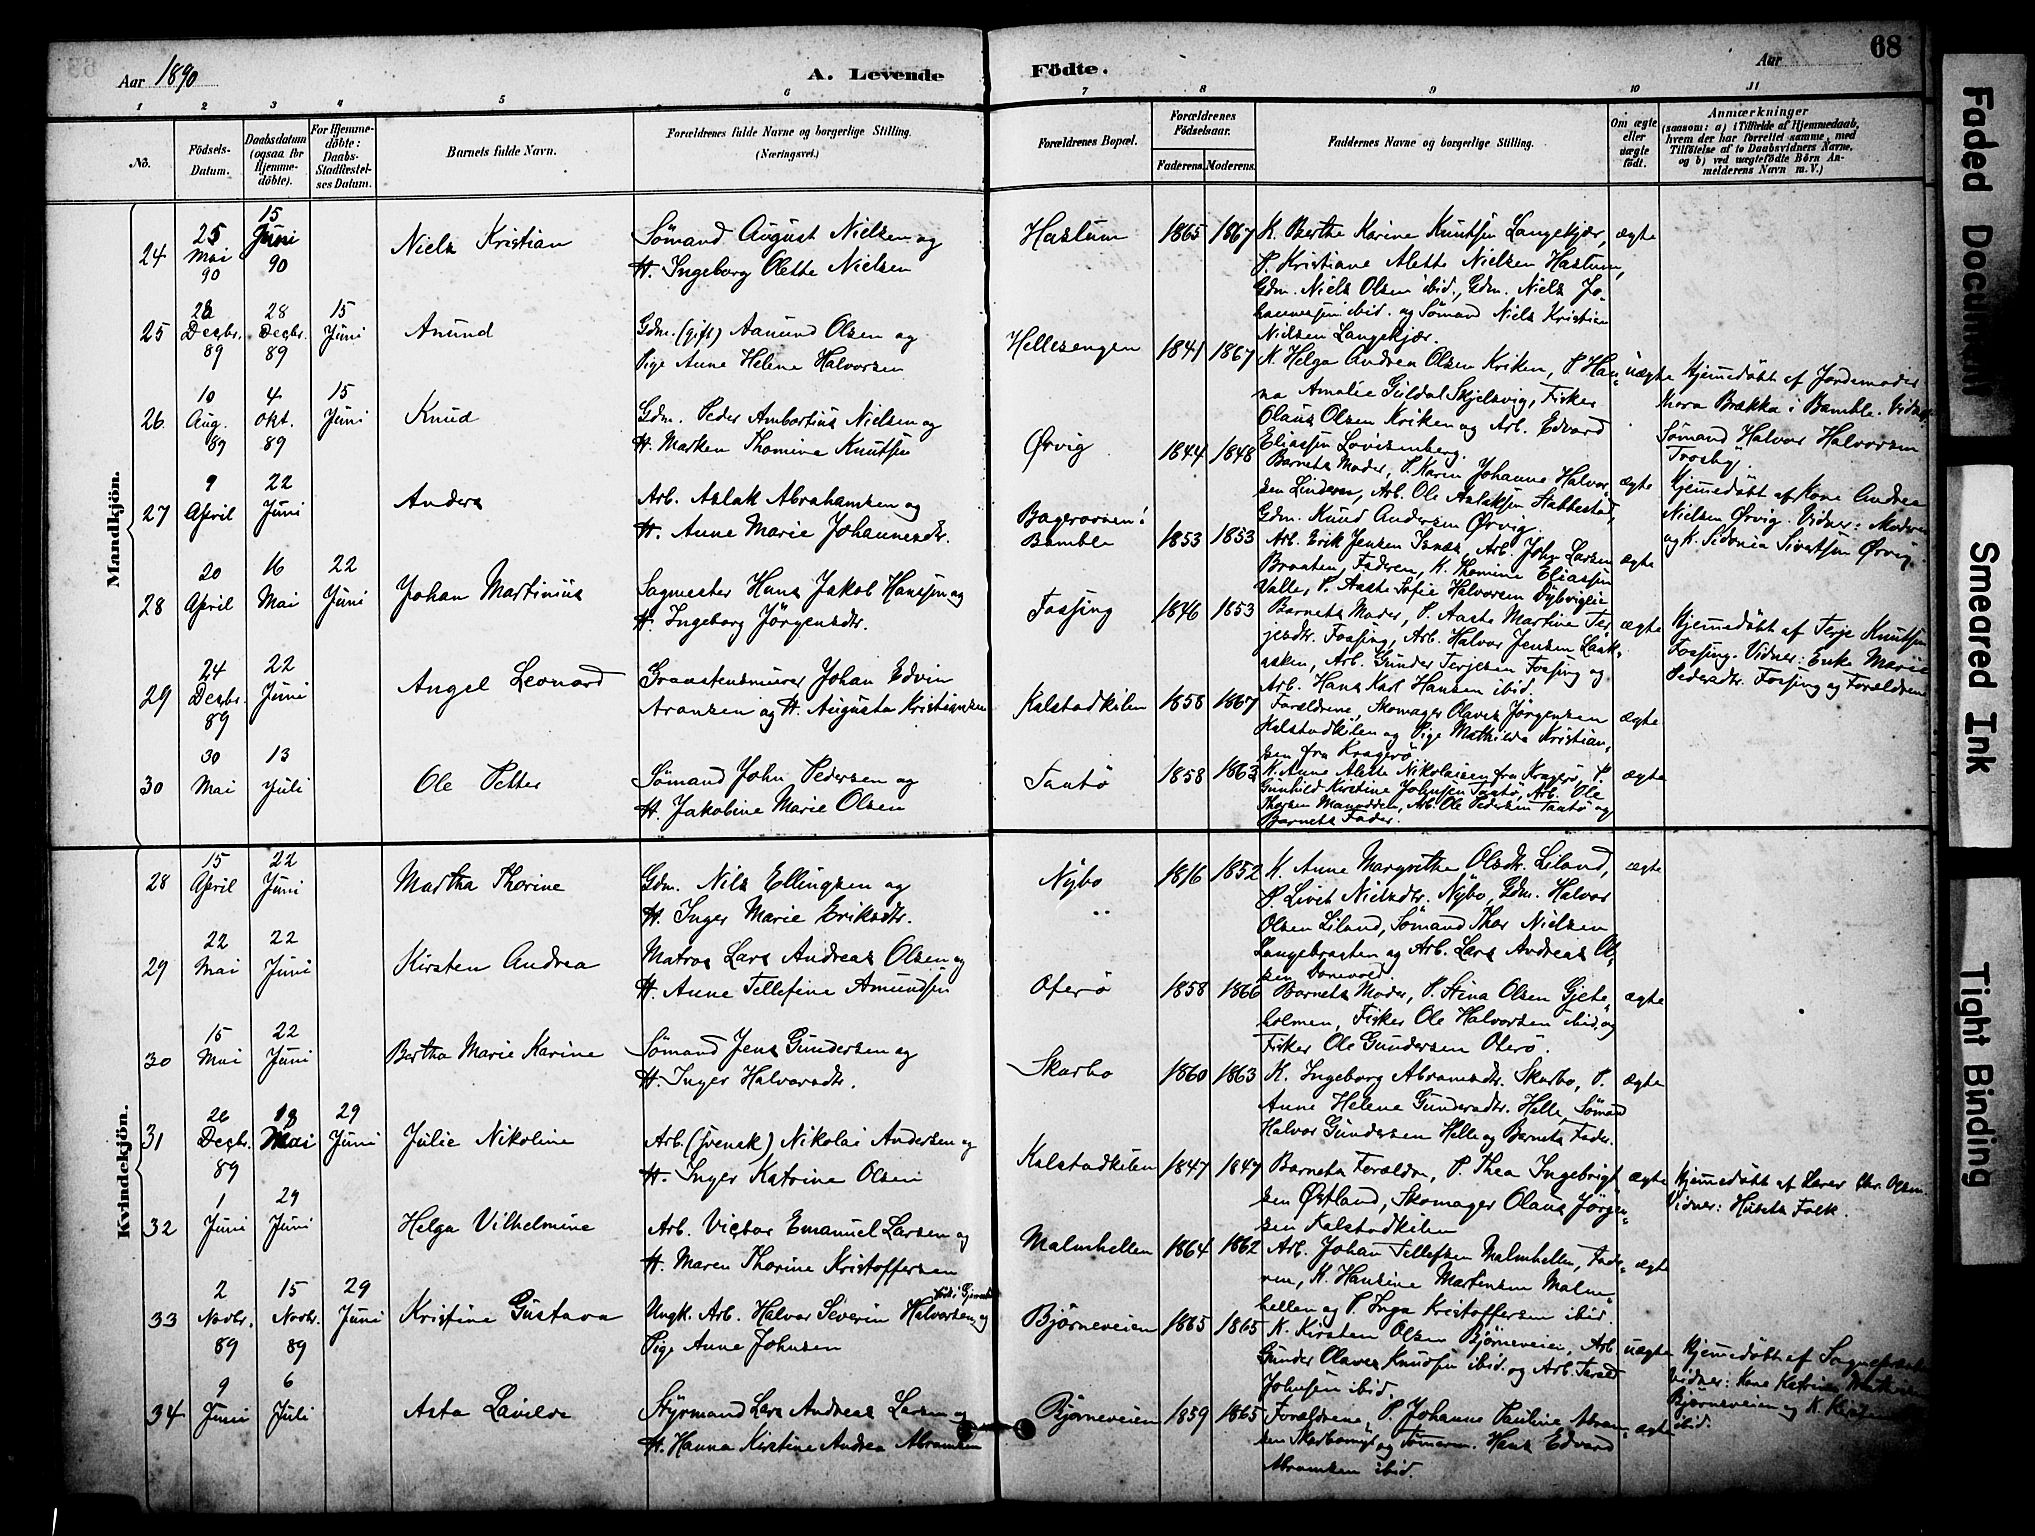 Aar 1890
A. Levende
Födte.
Aar
68
1 2 3 4 5 6 7 8 9 10 11
No.
Födsels-Datum.
Daabsdatum (ogsaa for Hjemmedöbte).
For Hjemmedöbte: Daabs-Stadfæstelses Datum.
Barnets fulde Navn.
Forældrenes fulde Navne og borgerlige Stilling. (Næringsvei.)
Forældrenes Bopæl.
Forældrenes Födselsaar.
Faderens. Moderens.
Faddernes Navne og borgerlige Stilling.
Om ægte eller uægte födt.
Anmærkninger
(saasom: a) i Tilfælde af Hjemmedaab, hvem der har forrettet samme, med Tilföielse af to Daabsvidners Navne, og b) ved uægtefödte Börn Anmelderens Navn m. V.)
Mandkjön.
24 25 Mai 90 15 Juni 90 Niels Kristian
Sømand August Nielsen og
H. Ingeborg Olette Nielsen
Haslum 1865 1867
K. Berthe Karine Knutsen Langekjær,
P. Kristiane Alette Nielsen Haslum,
Gdm. Niels Olsen ibid., Gdm. Niels Jo-
hannessen ibid. og Sømand Niels Kristian
Nielsen Langekjær.
ægte
25 Decbr. 89 28 Decbr. 89 15 Juni Anund
Gdm. (gift) Aanund Olsen og
Pige Anne Helene Halvorsen
Hellesengen 1841 1867
K. Helga Andrea Olsen Kriken, P. Han-
na Amalie Guldal Skjelsvig, Fisker
Olaus Olsen Kriken og Arb. Edvard
Eliassen Lovisenberg.
uægte
Hjemmedöbt af Jordemoder
Thora Brækka i Bamble. Vidner:
Sømand Halvor Halvorsen
Trosby.
26 10 Aug. 89 4 Okt. 89 15 Juni Knud
Gdm. Peder Ambortius Nielsen og
H. Marken Thomine Knutsen
Ørvig 1844 1848
Barnets Moder, P. Karen Johanne Halvor-
sen Linderen, Arb. Ole Aslaksen Stabbestad,
Gdm. Knud Andersen Ørvig.
ægte
Hjemmedöbt af Kone Andrea
Nielsen Ørvig. Vidner: Moderen
og K. Sidonia Sivertsen Ørvig.
27 9 April 22 Juni Anders
Arb. Aslak Abrahamsen og
H. Anne Marie Johannesdtr.
Bamble 1853 1853
Arb. Erik Jensen Isnæs, Arb. John Larsen
Braaten, Faderen, K. Thomine Eliassen
Valle, P. Aaste Sofie Halvorsen Dybviglie
ægte
28 20 April 16 Mai 22 Juni Johan Martinius
Sagmester Hans Jakob Hanssen og
H. Ingeborg Jörgensdtr.
Fossing 1846 1853
Barnets Moder, P. Aaste Martine Ter-
jesdtr. Fossing, Arb. Halvor Jensen Laak-
asken, Arb. Gunder Terjesen Fossing og
Arb. Hans Karl Hansen ibid.
ægte
Hjemmedöbt af Terje Knutsen
Fossing. Vidner: Enke Marie
Pedersdtr. Fossing og Forældrene
29 24 Decbr. 89 22 Juni Angel Leonard
Graastensmurer Johan Edvin
Aronsen og H. Augusta Kristiansen
Kalstadkilen 1858 1867
Forældrene, Skomager Olaves Jørgensen
Kalstadkilen og Pige Mathilda Kristian-
sen fra Kragerø
ægte
30 30 Mai 13 Juli Ole Petter
Sømand John Pedersen og
H. Jakobine Marie Olsen
Taatø 1858 1863
K. Anne Alette Nikolaisen fra Kragerø, P.
Gunhild Kirstine Johnsen Taatø, Arb. Ole
Thorsen Manodden, Arb. Ole Pedersen Taatø og
Barnets Fader.
ægte
Kvindekjön.
28 15 April 22 Juni Martha Thorine
Gdm. Nils Ellingsen og
H. Inger Marie Eriksdtr.
Nybo 1816 1852
K. Anne Margrethe Olsdtr. Liland,
P. Livet Nielsdtr. Nybo, Gdm. Halvor
Olsen Liland, Sømand Thor Nielsen
Langebragten og Arb. Lars Andreas Ol-
sen Donevold.
ægte
29 22 Mai 22 Juni Kirsten Andrea
Matros Lars Andreas Olsen og
H. Anne Tellefine Amundsen
Oterø 1858 1866
Barnets Moder, P. Stina Olsen Gjete-
holmen, Fisker Ole Halvorsen ibid. og
Fisker Ole Gundersen Oterø.
ægte
30 15 Mai 22 Juni Bertha Marie Karine
Sømand Jens Gundersen og
H. Inger Halvorsdtr.
Skarbo 1860 1863
K. Ingeborg Abramsdtr. Skarbo, P.
Anne Helene Gundersdtr. Helle, Sømand
Halvor Gundersen Helle og Barnets Fader.
ægte
31 26 Decbr. 89 Mai 29 Juni Julie Nikoline
Arb. (svensk) Nikolai Andersen og
H. Inger Katrine Olsen
Kalstadkilen 1847 1847
Barnets Forældre, P. Thea Ingebrigt-
sen Østland, Skomager Olaus Jørgen-
sen Kalstadkilen
ægte
Hjemmedöbt af Lærer Chr. Olsen
Vidner: Husets Folk.
32 1 Juni 29 Juni Helga Vilhelmine
Arb. Victor Emanuel Larsen og
H. Maren Thorine Kristoffersen
Malmhellen 1864 1862
Arb. Johan Tellefsen Malmhellen, Fade-
ren, K. Hansine Martensen Malm-
hellen og P. Inga Kristoffersen ibid.
ægte
33 2 Novbr. 89 15 Novbr. 89 29 Juni Kristine Gustava
Ungk. Arb. Halvor Severin Halvorsen og
Pige Anne Johnsen
Bjørneveien 1865 1865
K. Kirsten Olsen Bjørneveien, Arb.
Gunder Olaves Knudsen ibid. og Arb. Tarald
Johnsen ibid.
uægte
Hjemmedöbt af Sognepræsten
Vidner: Kone Katrine
Bjørneveien og K.
ibid.
34 9 Juni 6 Juli Asta Lavilde
Styrmand Lars Andreas Larsen og
H. Hanna Kirstine Andrea Abramsen
Bjørneveien 1859 1865
Forældrene, P. Johanne Pauline Abram-
sen Skarbomyr og Tømmerm. Hans Edvard
Abramsen ibid.
ægte
Faded Document
Smeared Ink
Tight Binding